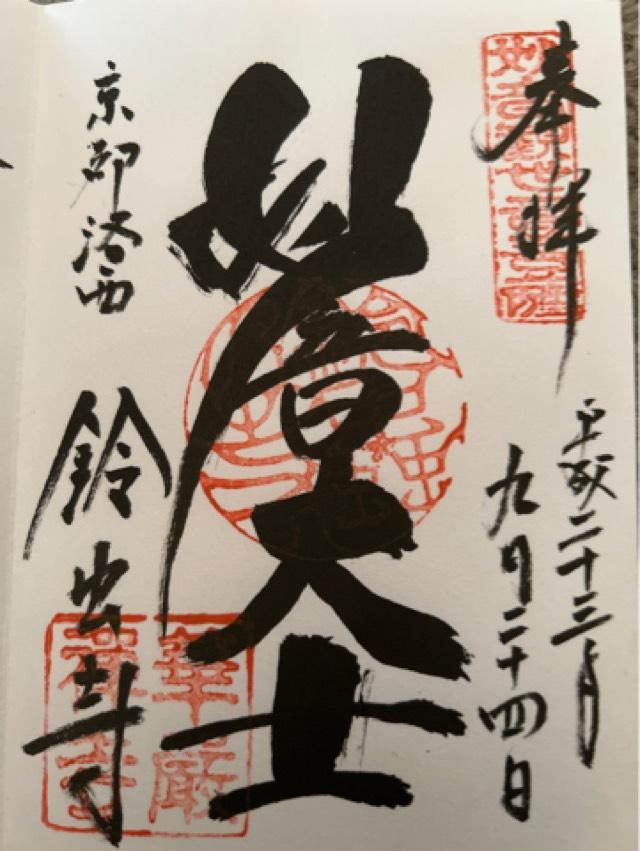 奉拝
平成二十三年
九月二十四日
妙音大士
京都洛西
鈴虫寺
華厳
禅寺